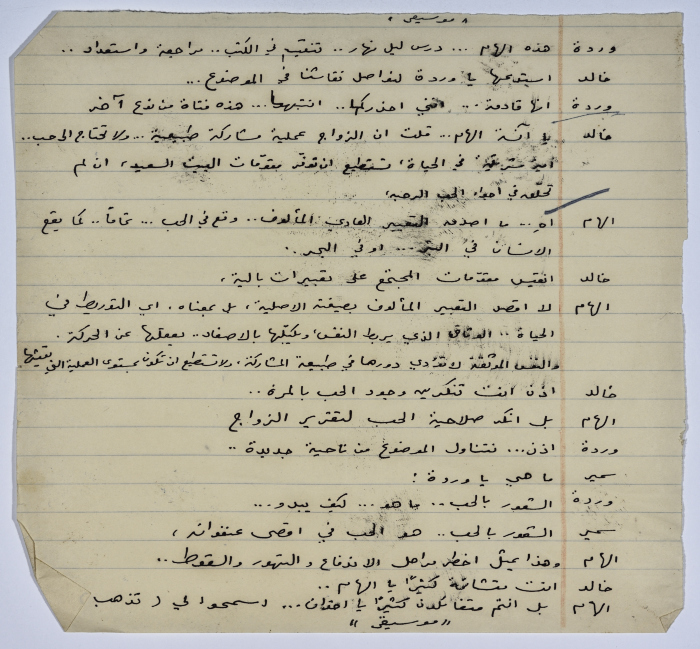 « موسيقى »
وردة هذه الهام ... درس ليل نهار .. تنقيب في الكتب .. مراجعة واستعداد ..
خالد استدعيها يا وردة لنواصل نقاشنا في الموضوع ...
وردة انها قادمة ... انني احذركما .. انتبها ... هذه فتاة من نوع آخر
خالد يا آنسة الهام .. قلت ان الزواج عملية مشاركة طبيعية ... ولا تحتاج الى حب ..
في الحياة، تستطيع ان توفر مقدمات البيت السعيد، ان لم
تحلق في اجواء الحب الرحبة،
الهام آه ... ما اصدق التعبير العادي المألوف .. وقع في الحب ... تماماً .. كما يقع
الانسان في البئر ... او في البحر ..
خالد اتقيس مقدمات المجتمع على تعبيرات بالية،
الهام لا اقصد التعبير المألوف بصيغته الاصلية، بل بمعناه. اي التوريط في
الحياة .. الوثاق الذي يربط النفس، ويكبلها بالاصفاد .. يعقلها عن الحركة.
والنفس الموثقة لا تؤدي دورها في طبيعة المشاركة، ولا تستطيع ان تكون بمستوى العملية التي
خالد اذن انت تنكرين وجود الحب بالمرة ..
الهام بل انكر صلاحية الحب لتقرير الزواج
وردة اذن ... نتناول الموضوع من ناحية جديدة ..
سمير ما هي يا وردة :
وردة الشعور بالحب .. ما هو ... كيف يبدو ...
سمير الشعور بالحب .. هو الحب في اقصى عنفوانه ،
الهام وهذا يمثل اخطر مراحل الاندفاع والتهور والسقوط ..
خالد انت متشائمة كثيرًا يا الهام ..
الهام بل انتم متفائلون كثيرًا يا اخوان ... اسمحوا لي ( تذهب
« موسيقى »